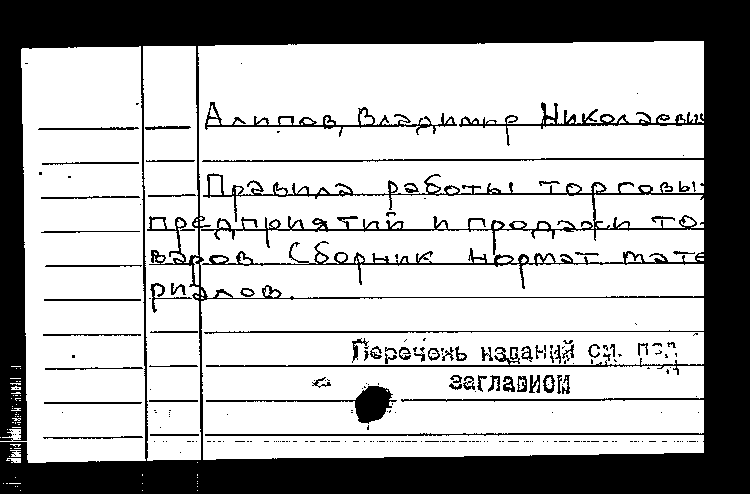 Алипов, Владимир Николаевич
Правила работы торговых
предприятий и продажи то-
варов. Сборник нормат. мате
риалов.
Перечень изданий см. под
заглавием